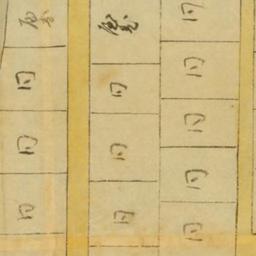 同
同
同
同
同
同
同
同
同
同
同